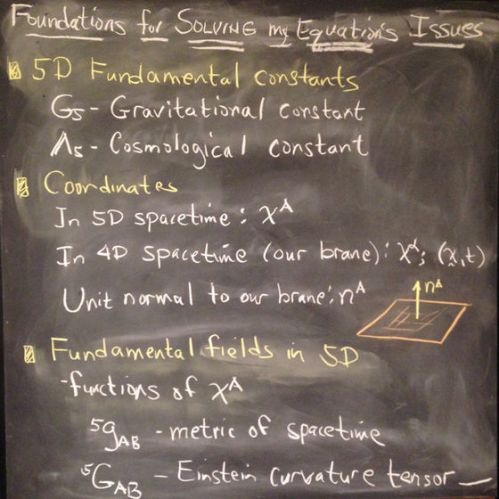 Foundations for SOLVING my Equation's Issues
5D Fundamental constants
G5 - Gravitational constant
Λ5 - Cosmological constant
Coordinates
In 5D spacetime: x^A
In 4D spacetime (our brane): x^α; (x,t)
Unit normal to our brane: n^A
n^A
Fundamental fields in 5D
- functions of x^A
5gAB - metric of spacetime
5GAB - Einstein curvature tensor